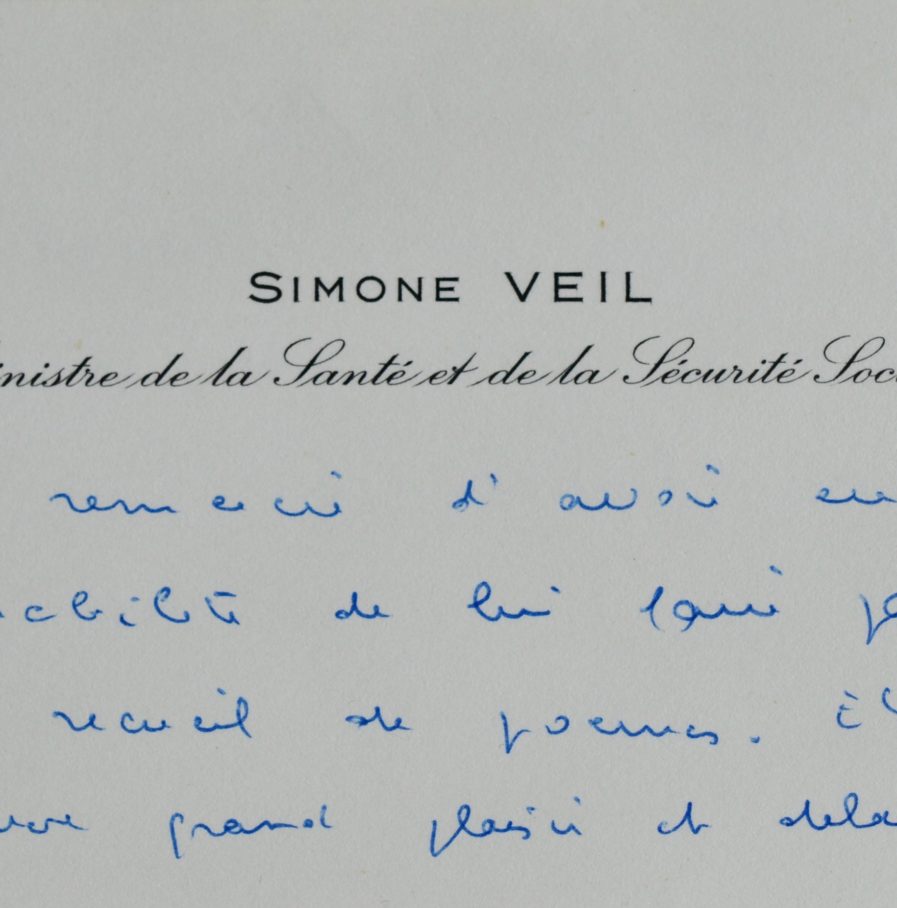 SIMONE VEIL
inistre de la Santé et de la Sécurité Soc
remercie d'avoir eu
abilité de lui faire
recueil de poèmes.
grand plaisir et